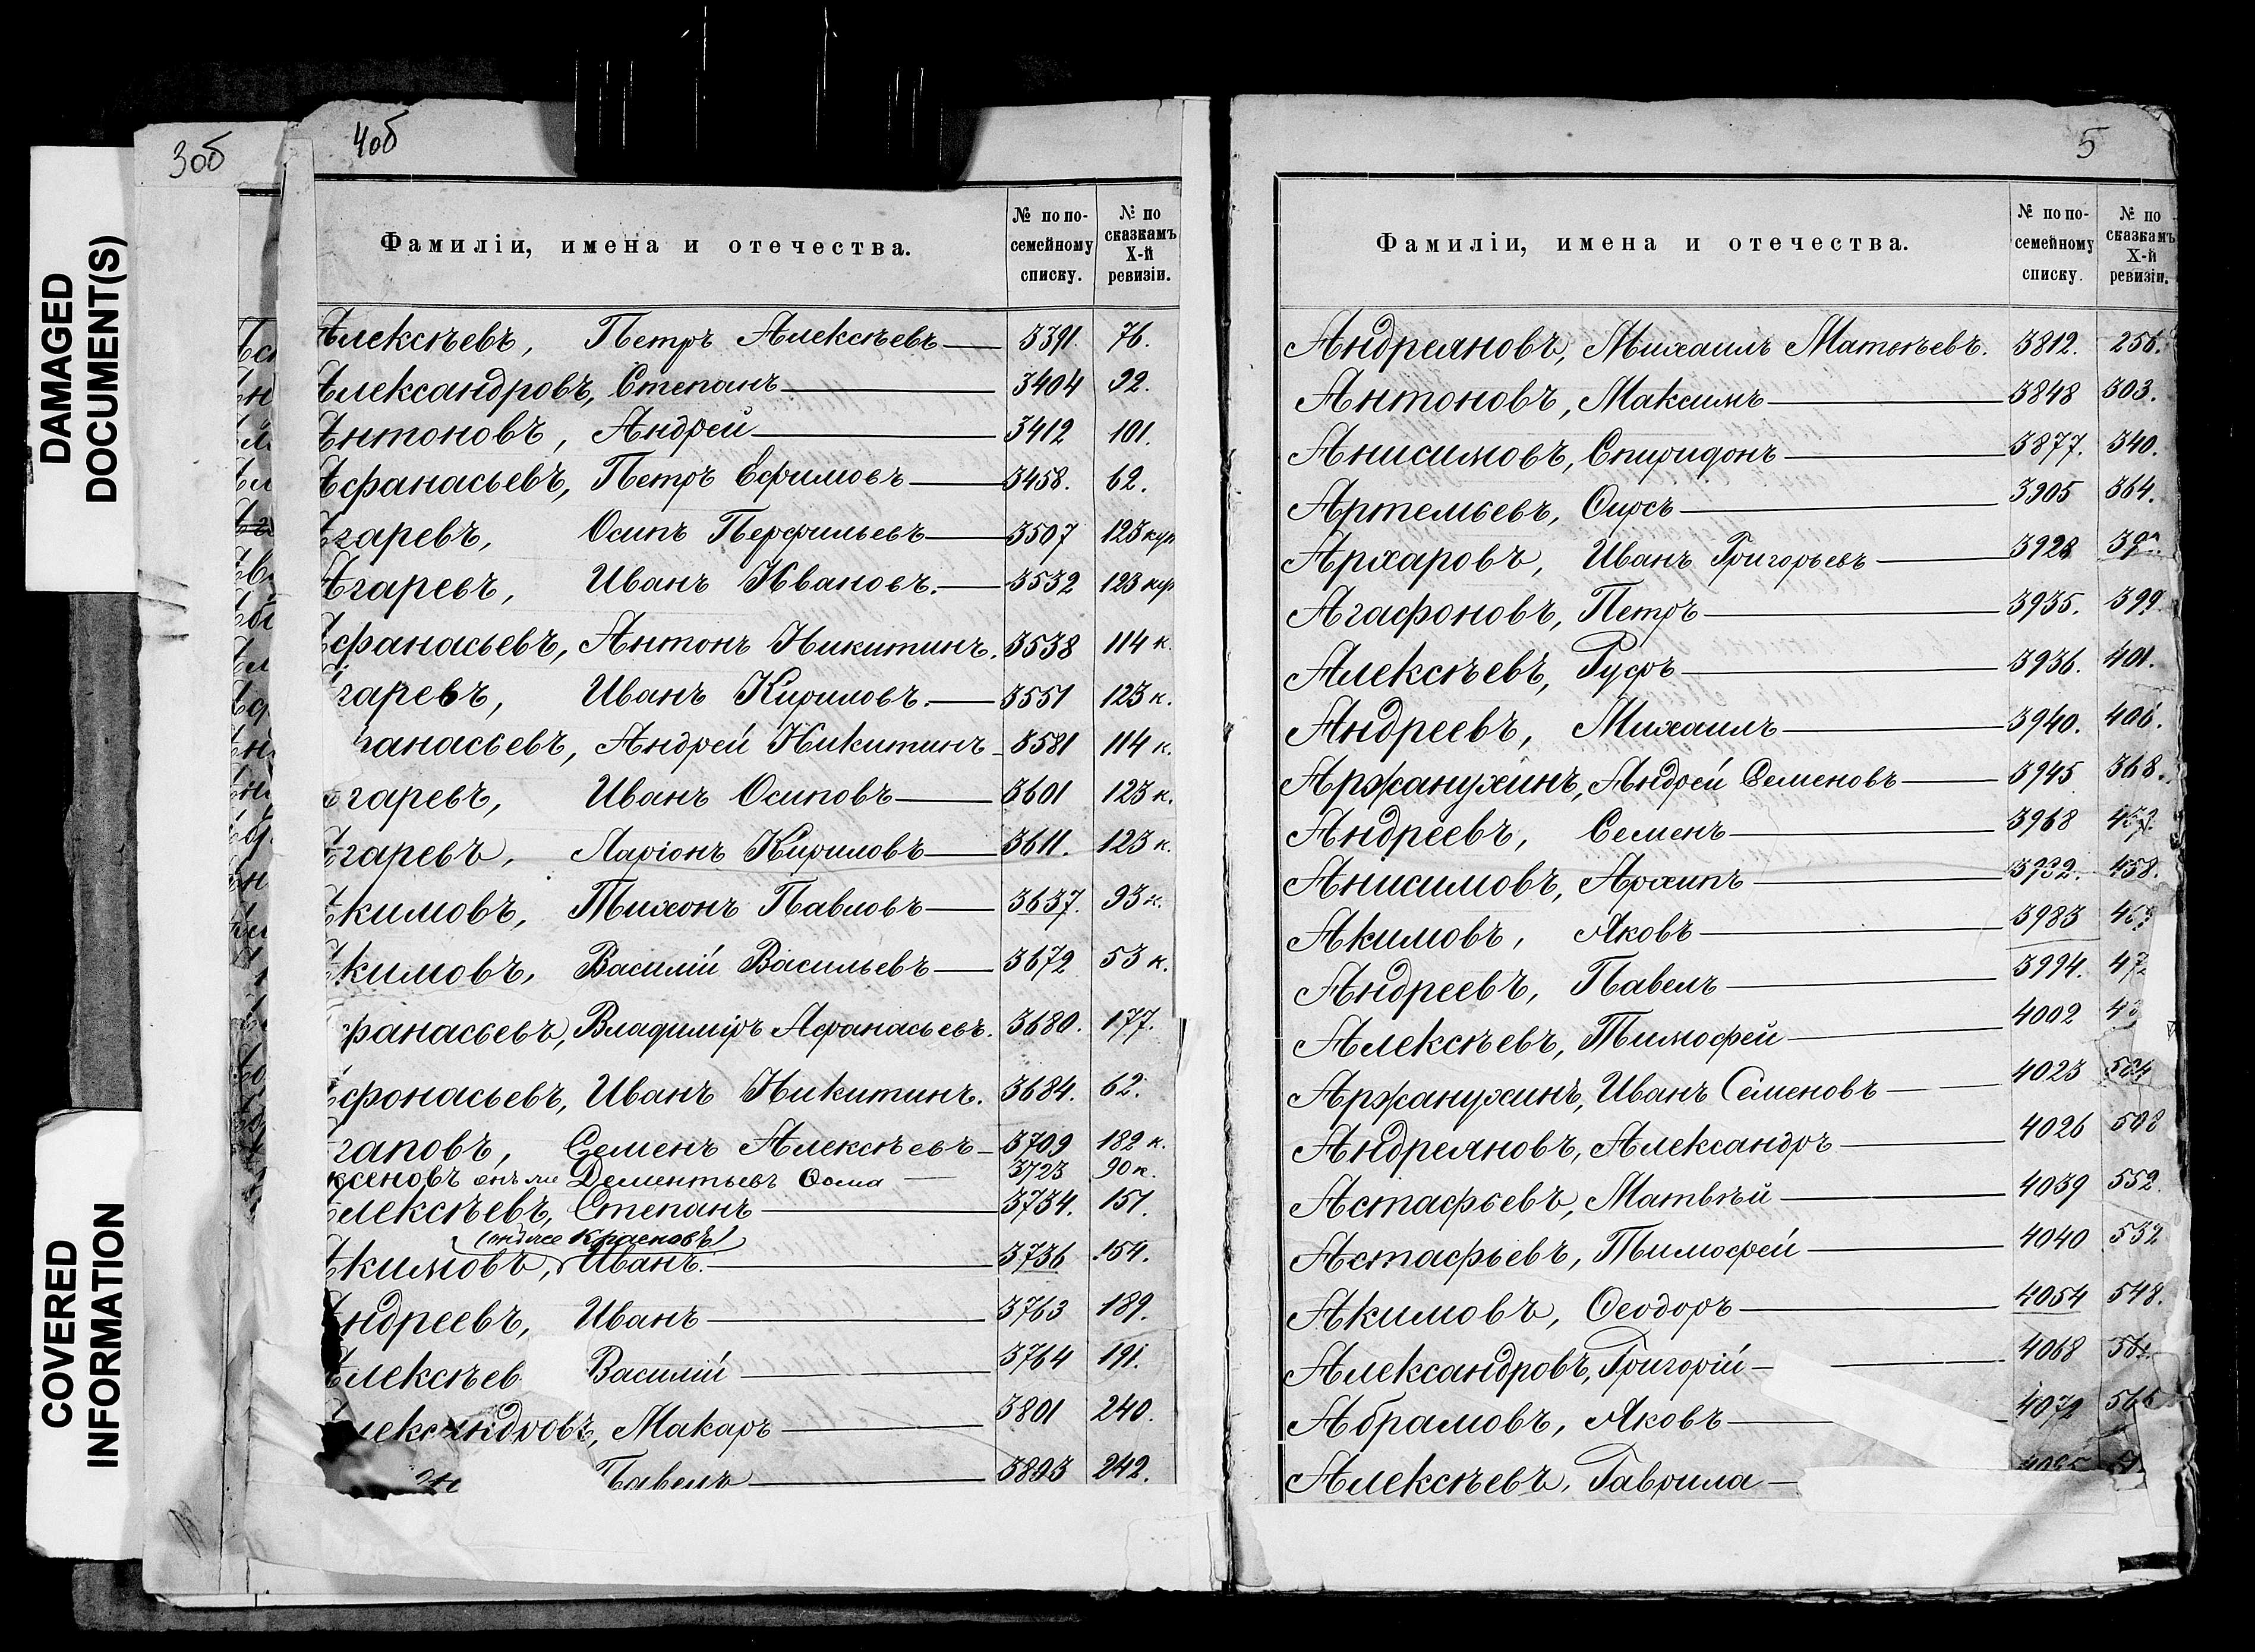 DAMAGED
DOCUMENT(S)
COVERED
INFORMATION
3об
4об
Фамиліи, имена и отечества. № по посемейному списку. № по сказкамъ X-й ревизіи.
Алексѣевъ, Петръ Алексѣевъ 3391. 76.
Александровъ, Степанъ 3404 92.
Антоновъ, Андрей 3412 101.
Афанасьевъ, Петръ Ефимовъ 3458. 62.
Агаревъ, Осипъ Перфильевъ 3507 123 куп
Агаревъ, Иванъ Ивановъ. 3532 123 куп
Афанасьевъ, Антонъ Никитинъ. 3538 114 к.
Агаревъ, Иванъ Кириловъ. 3551 123 к.
анасьевъ, Андрей Никитинъ 3581 114 к.
Агаревъ, Иванъ Осиповъ 3601 123 к.
Агаревъ, Ларіонъ Кириловъ 3611. 123 к.
Акимовъ, Тихонъ Павловъ 3637. 93 к.
Акимовъ, Василій Васильевъ 3672 53 к.
фанасьевъ, Владиміръ Афанасьевъ. 3680. 177.
Афонасьевъ, Иванъ Никитинъ. 3684. 62.
гаповъ, Семенъ Алексѣевъ 3709 182 к.
ксеновъ онъ же Дементьевъ Ѳома 3723 90 к.
Алексѣевъ, Степанъ 3734. 151.
(онъ же Красновъ)
Акимовъ, Иванъ. 3736 154.
Андреевъ, Иванъ 3763 189.
Алексѣев Василій 3764 191.
Александровъ, Макаръ 3801 240.
Павелъ 3803 242.
5
Фамиліи, имена и отечества. № по посемейному списку. № по сказкамъ X-й ревизіи.
Андреяновъ, Михаилъ Матвѣевъ. 3812. 256.
Антоновъ, Максимъ 3848 303.
Анисимовъ, Спиридонъ 3877. 340.
Артемьевъ, Фирсъ 3905 364.
Архаровъ, Иванъ Григорьевъ 3928
Агафоновъ, Петръ 3935. 399.
Алексѣевъ, Руфъ 3936. 401.
Андреевъ, Михаилъ 3940. 406.
Аржанухинъ, Андрей Семеновъ 3945 368.
Андреевъ, Семенъ 3968
Анисимовъ, Архипъ 458.
Акимовъ, Яковъ 3983
Андреевъ, Павелъ 3994. 47
Алексѣевъ, Тимофей 4002
Аржанухинъ, Иванъ Семеновъ 4023
Андреяновъ, Александръ 4026 508
Астафьевъ, Матвѣй 4039 552
Астафьевъ, Тимофей 4040 532
Акимовъ, Ѳеодоръ 4054 548.
Александровъ, Григорій 4068
Абрамовъ, Яковъ 4072 566
Алексѣевъ, Гаврила